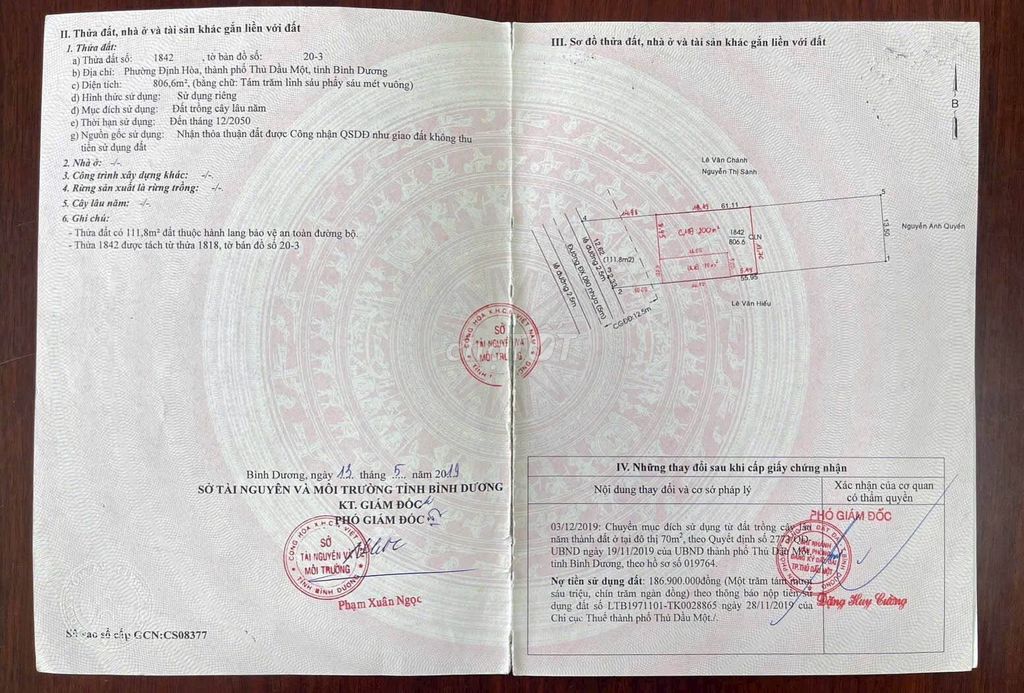 II. Thửa đất, nhà ở và tài sản khác gắn liền với đất
1. Thửa đất:
a) Thửa đất số: 1842 , tờ bản đồ số: 20-3
b) Địa chỉ: Phường Định Hòa, thành phố Thủ Dầu Một, tỉnh Bình Dương
c) Diện tích: 806,6m², (bằng chữ: Tám trăm linh sáu phẩy sáu mét vuông)
d) Hình thức sử dụng: Sử dụng riêng
đ) Mục đích sử dụng: Đất trồng cây lâu năm
e) Thời hạn sử dụng: Đến tháng 12/2050
g) Nguồn gốc sử dụng: Nhận thỏa thuận đất được Công nhận QSDĐ như giao đất không thu
tiền sử dụng đất
2. Nhà ở: -/-
3. Công trình xây dựng khác: -/-
4. Rừng sản xuất là rừng trồng: -/-
5. Cây lâu năm: -/-
6. Ghi chú:
- Thửa đất có 111,8m² đất thuộc hành lang bảo vệ an toàn đường bộ.
- Thửa 1842 được tách từ thửa 1818, tờ bản đồ số 20-3
Bình Dương, ngày 13 tháng 5 năm 2019
SỞ TÀI NGUYÊN VÀ MÔI TRƯỜNG TỈNH BÌNH DƯƠNG
KT. GIÁM ĐỐC
PHÓ GIÁM ĐỐC
CỘNG HÒA X.H.C.N VIỆT NAM
SỞ
TÀI NGUYÊN VÀ
MÔI TRƯỜNG
TỈNH BÌNH DƯƠNG
Phạm Xuân Ngọc
Số vào sổ cấp GCN:CS08377
III. Sơ đồ thửa đất, nhà ở và tài sản khác gắn liền với đất
B
Lê Văn Chánh
Nguyễn Thị Sành
61.11
5
4
1842
806.6
CLN
13.50
Nguyễn Anh Quyền
1
12.62
(111.8m2)
2.33
2
55.95
lề đường 2.5m
Đường ĐX 090 nhựa (5m)
lề đường 2.5m
CGĐĐ 12.5m
Lê Văn Hiếu
CỘNG HÒA X.H.C.N VIỆT NAM
SỞ
TÀI NGUYÊN VÀ
MÔI TRƯỜNG
IV. Những thay đổi sau khi cấp giấy chứng nhận
Nội dung thay đổi và cơ sở pháp lý
Xác nhận của cơ quan
có thẩm quyền
03/12/2019: Chuyển mục đích sử dụng từ đất trồng cây lâu
năm thành đất ở tại đô thị 70m², theo Quyết định số 2773/QĐ-
UBND ngày 19/11/2019 của UBND thành phố Thủ Dầu Một,
tỉnh Bình Dương, theo hồ sơ số 019764.
Nợ tiền sử dụng đất: 186.900.000đồng (Một trăm tám mươi
sáu triệu, chín trăm ngàn đồng) theo thông báo nộp tiền sử
dụng đất số LTB1971101-TK0028865 ngày 28/11/2019 của
Chi cục Thuế thành phố Thủ Dầu Một./.
PHÓ GIÁM ĐỐC
CHI NHÁNH
VĂN PHÒNG
ĐĂNG KÝ ĐẤT ĐAI
TP.THỦ DẦU MỘT
Đặng Huy Cường